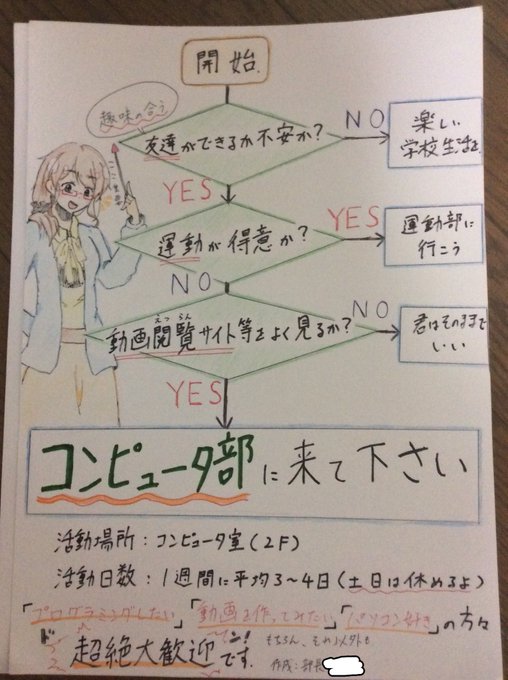 開始
趣味の合う
友達ができるか不安か?
NO
楽しい
学校生活を
ここ重要
YES
運動が得意か?
YES
運動部に
行こう
NO
えつらん
動画閲覧サイト等をよく見るか?
NO
君はそのままで
いい
YES
コンピュータ部に来て下さい
活動場所:コンピュータ室(2F)
活動日数:1週間に平均3~4日(土日は休めるよ)
「プログラミングしたい」「動画を作ってみたい」「パソコン好き」の方々
超絶大歓迎です。
もちろん、それ以外も
作成:部長